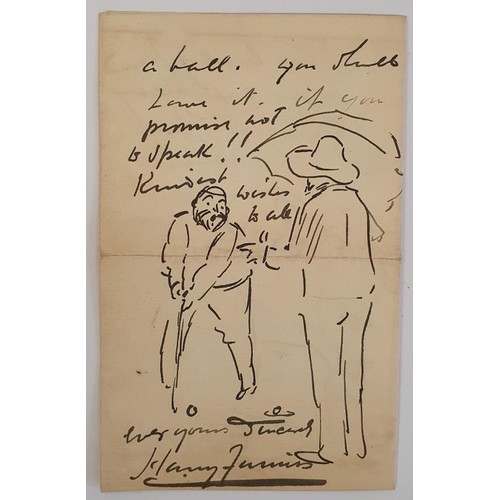 a ball. you shall
have it. if you
promise not
to speak!!
Kindest wishes
to all
ever yours Sincerely
Harry Furniss